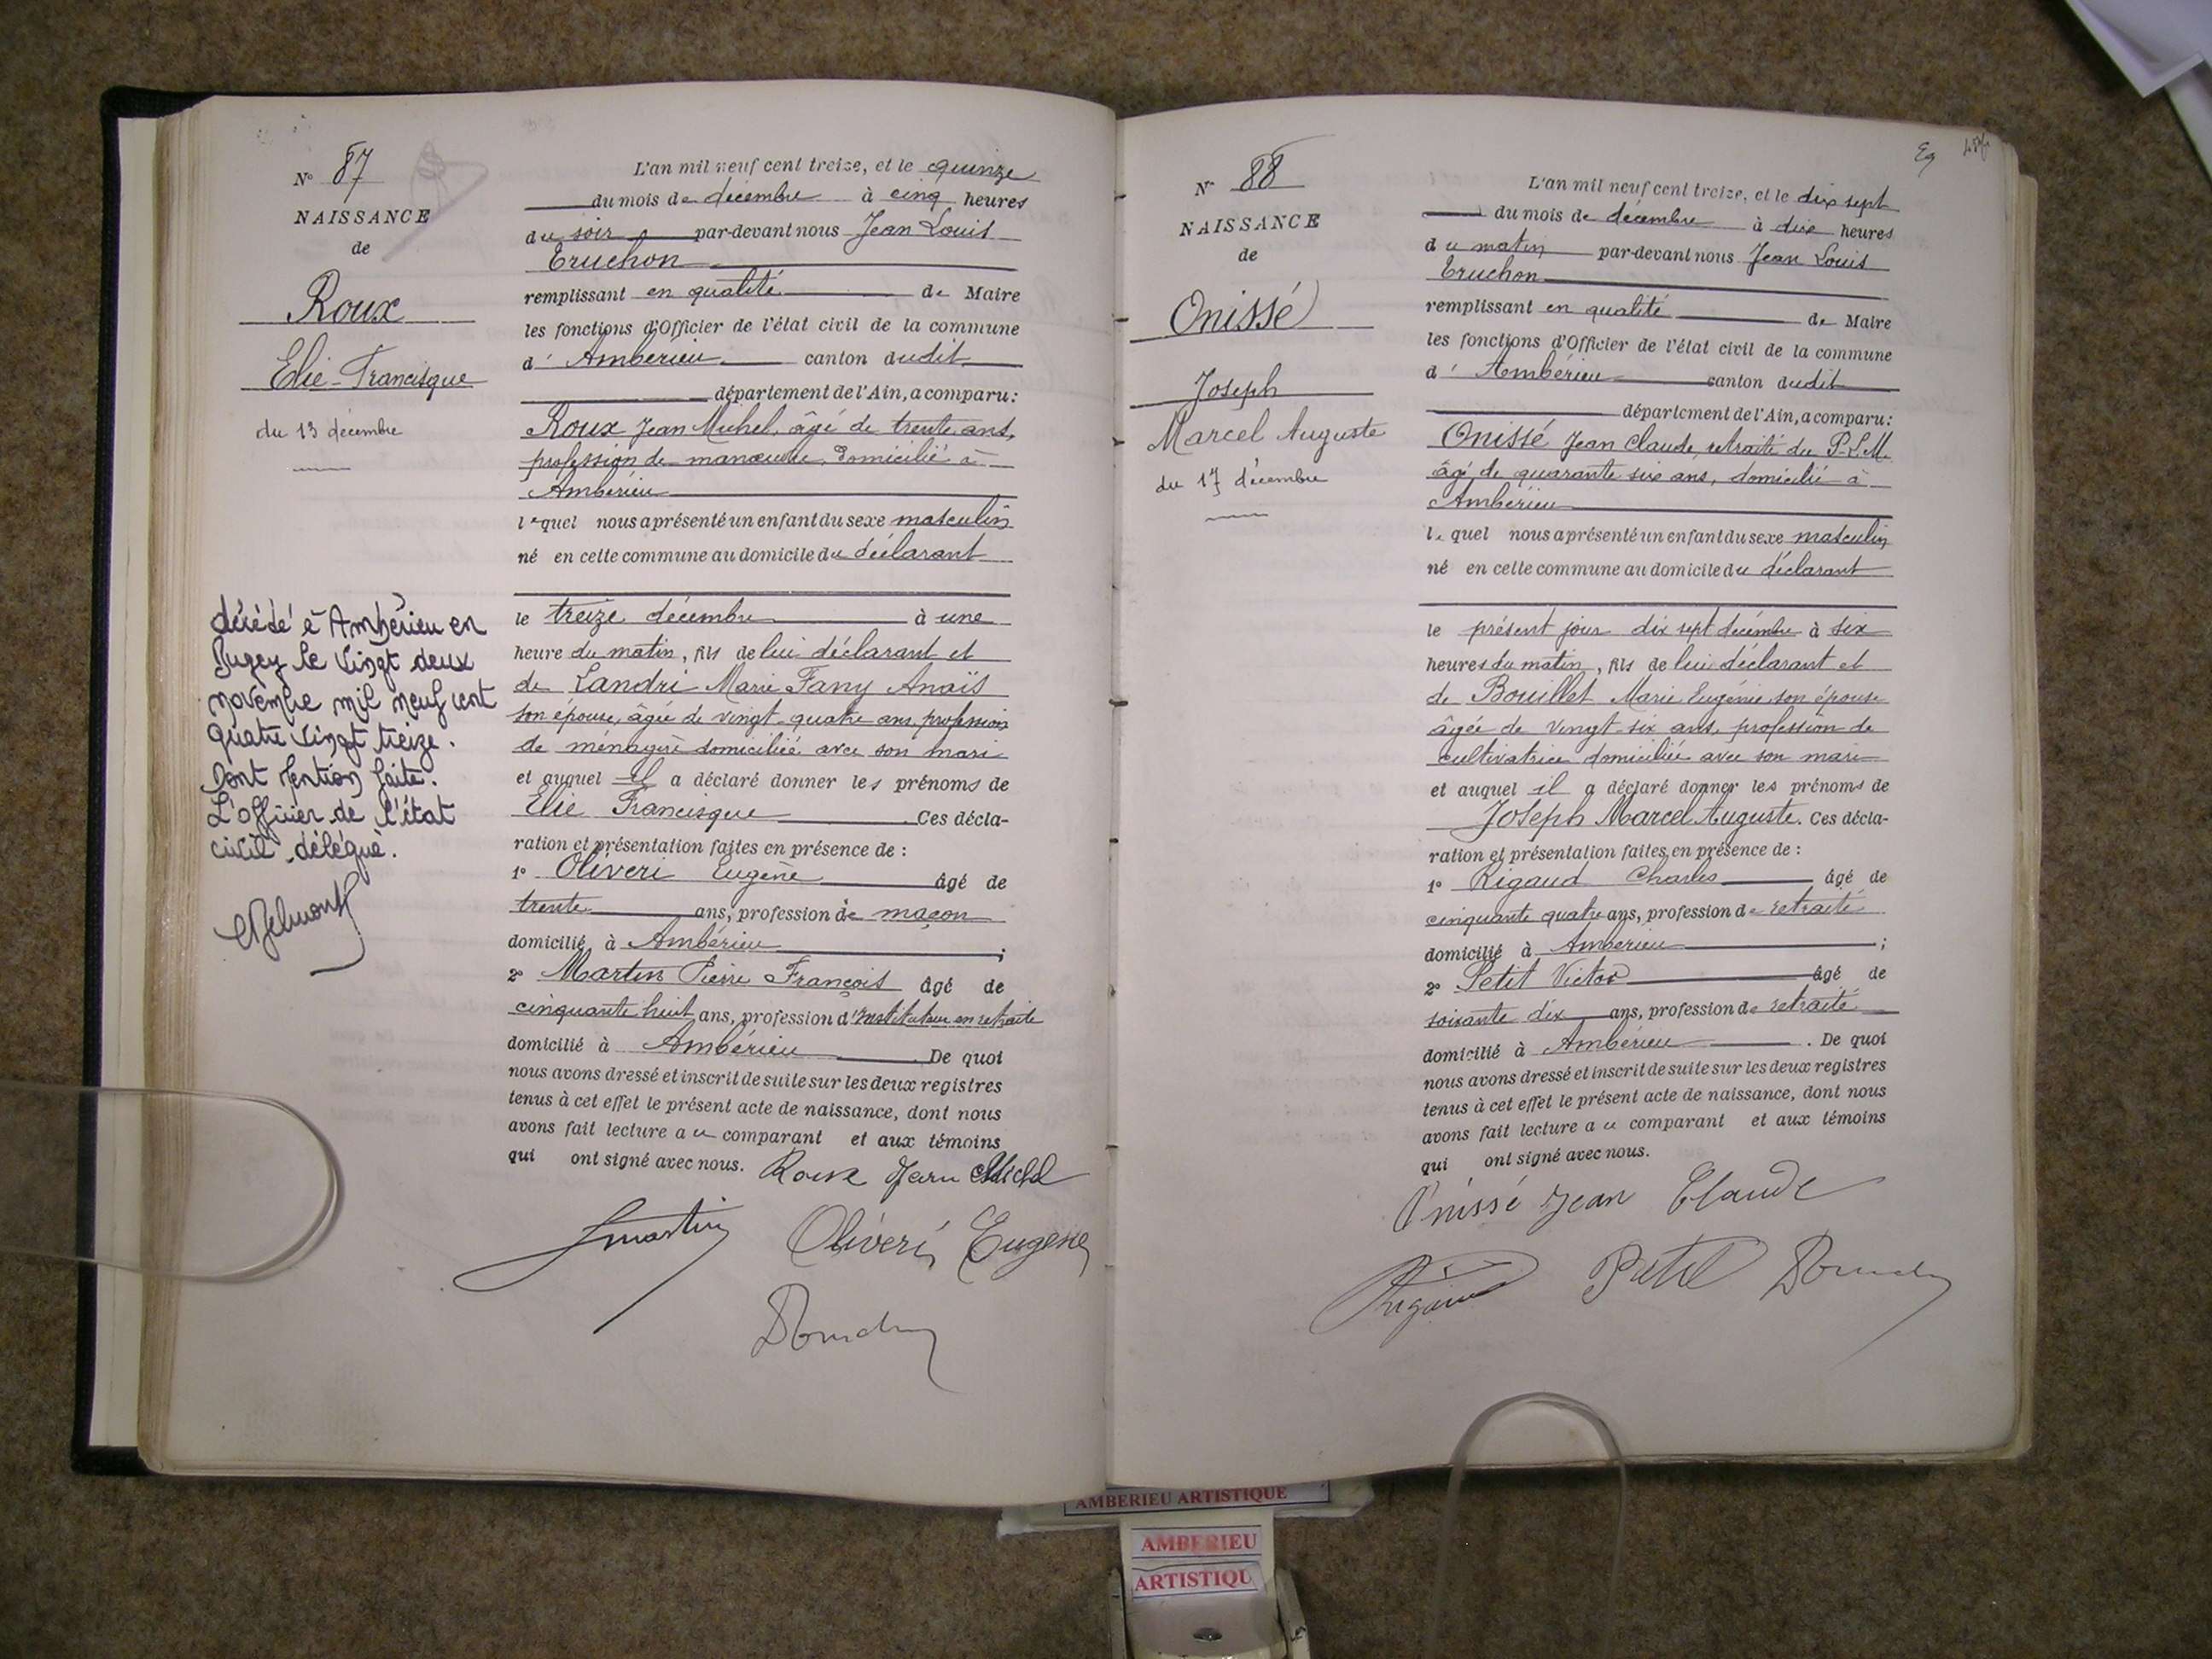 N° 87
NAISSANCE
de
Roux
Elie-Francisque
du 13 décembre
décédé à Ambérieu en
Bugey le vingt deux
novembre mil neuf cent
quatre vingt treize.
Dont Mention faite.
L'officier de l'état
civil délégué.
L'an mil neuf cent treize, et le quinze
du mois de décembre à cinq heures
du soir par-devant nous Jean Louis
Truchon
remplissant en qualité de Maire
les fonctions d'Officier de l'état civil de la commune
d' Ambérieu canton dudit
département de l'Ain, a comparu:
Roux Jean Michel, âgé de trente ans,
profession de manœuvre, domicilié à
Ambérieu
lequel nous a présenté un enfant du sexe masculin
né en cette commune au domicile du déclarant
le treize décembre à une
heure du matin, fils de lui déclarant et
de Landri Marie Fany Anaïs
son épouse, âgée de vingt-quatre ans, profession
de ménagère domiciliée avec son mari
et auquel il a déclaré donner les prénoms de
Elie Francisque Ces décla-
ration et présentation faites en présence de :
1° Oliveri Eugène âgé de
trente ans, profession de maçon
domicilié à Ambérieu ;
2° Martin Pierre François âgé de
cinquante huit ans, profession d'instituteur en retraite
domicilié à Ambérieu De quoi
nous avons dressé et inscrit de suite sur les deux registres
tenus à cet effet le présent acte de naissance, dont nous
avons fait lecture au comparant et aux témoins
qui ont signé avec nous. Roux Jean Michel
Martin Oliveri Eugène
N° 88
NAISSANCE
de
Onissé
Joseph
Marcel Auguste
du 17 décembre
L'an mil neuf cent treize, et le dix sept
du mois de décembre à dix heures
du matin par-devant nous Jean Louis
Truchon
remplissant en qualité de Maire
les fonctions d'Officier de l'état civil de la commune
d' Ambérieu canton dudit
département de l'Ain, a comparu:
Onissé Jean Claude, retraité du P.L.M.
âgé de quarante six ans, domicilié à
Ambérieu
lequel nous a présenté un enfant du sexe masculin
né en cette commune au domicile du déclarant
le présent jour dix sept décembre à six
heures du matin, fils de lui déclarant et
de Bouillet Marie Eugénie son épouse
âgée de vingt-six ans, profession de
cultivatrice domiciliée avec son mari
et auquel il a déclaré donner les prénoms de
Joseph Marcel Auguste. Ces décla-
ration et présentation faites en présence de :
1° Rigaud Charles âgé de
cinquante quatre ans, profession de retraité
domicilié à Ambérieu ;
2° Petit Victor âgé de
soixante dix ans, profession de retraité
domicilié à Ambérieu . De quoi
nous avons dressé et inscrit de suite sur les deux registres
tenus à cet effet le présent acte de naissance, dont nous
avons fait lecture au comparant et aux témoins
qui ont signé avec nous.
Onissé Jean Claude
Rigaud Petit
AMBERIEU ARTISTIQUE
AMBERIEU
ARTISTIQU